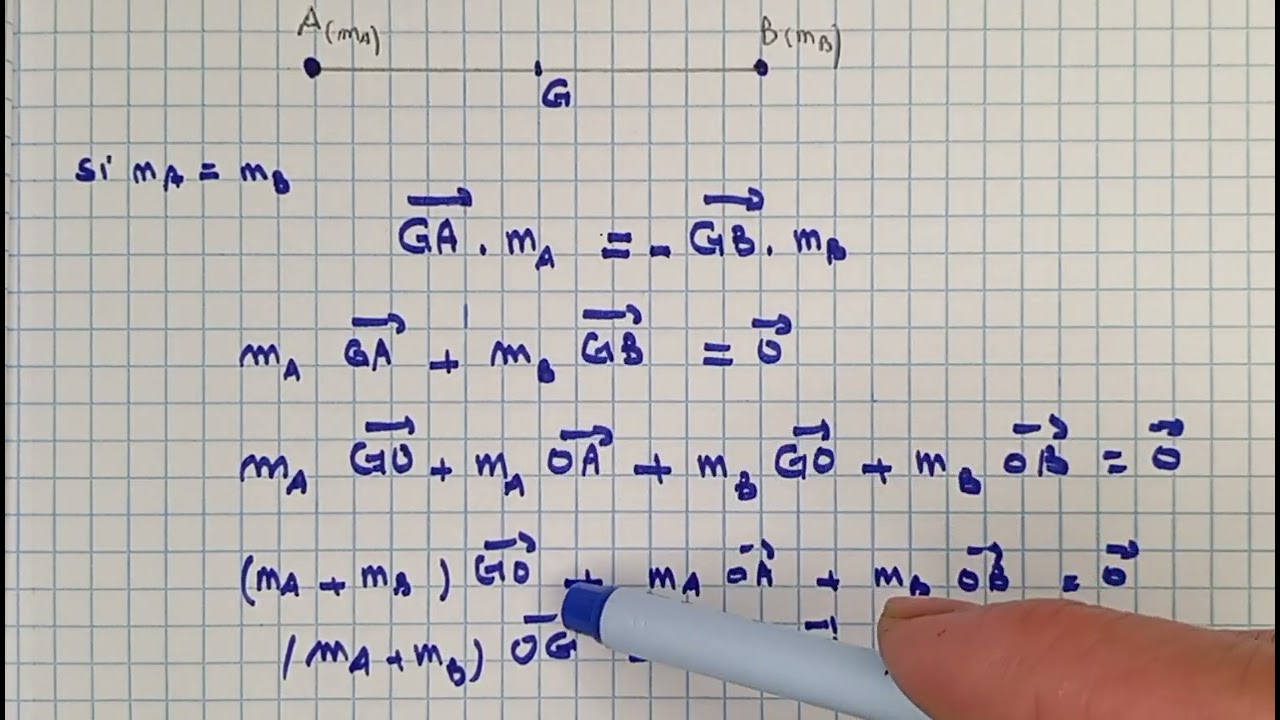 A(mA) B(mB)
G
si mA = mB
GA⃗ . mA = - GB⃗ . mB
mA GA⃗ + mB GB⃗ = 0⃗
mA GO⃗ + mA OA⃗ + mB GO⃗ + mB OB⃗ = 0⃗
(mA + mB) GO⃗ + mA OA⃗ + mB OB⃗ = 0⃗
(mA + mB) OG⃗